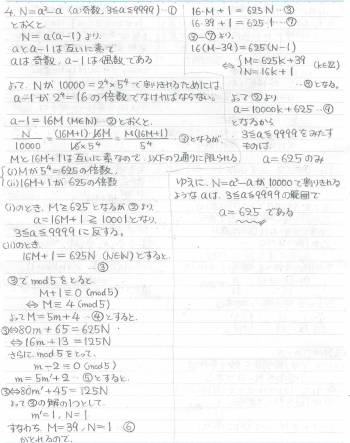 4. N=a²-a (a:奇数, 3≦a≦9999) …①
とおくと
N = a(a-1) より、
aとa-1は互いに素で
aは奇数、a-1は偶数である
よって、Nが10000=2⁴×5⁴で割りきれるためには
a-1が2⁴=16の倍数でなければならない。
a-1=16M (M∈N) …②とおくと、
N/10000 = (16M+1)·16M/16×5⁴ = M(16M+1)/5⁴ …③となるが、
Mと16M+1は互いに素なので、以下の2通りに限られる。
(i) Mが5⁴=625の倍数、
(ii) 16M+1が625の倍数
(i)のとき、M≧625となるが②より、
a=16M+1≧10001となり、
3≦a≦9999に反する。
(ii)のとき、
16M+1=625N (N∈N)とすると、
…③
③でmod5をとると、
M+1≡0 (mod5)
⇔ M≡4 (mod5)
よってM=5m+4 …④とすると、
③⇔80m+65=625N
⇔16m+13=125N
さらにmod5をとって、
m-2≡0 (mod5)
m=5m'+2 …⑤とすると、
③⇔80m'+45=125N
よって③の解の1つとして、
m'=1, N=1
すなわち、M=39, N=1 …⑥
がとれるので、
16·M+1=625N …③
16·39+1=625·1 …⑦
③-⑦より、
16(M-39)=625(N-1)
⇔ {M=625k+39
N=16k+1 (k∈Z)
…⑧となる。
よって②より
a=10000k+625 …⑨
となるから
3≦a≦9999をみたす
ものは、
a=625のみ
ゆえに、N=a²-aが10000で割りきれる
ようなaは、3≦a≦9999の範囲で
a=625である